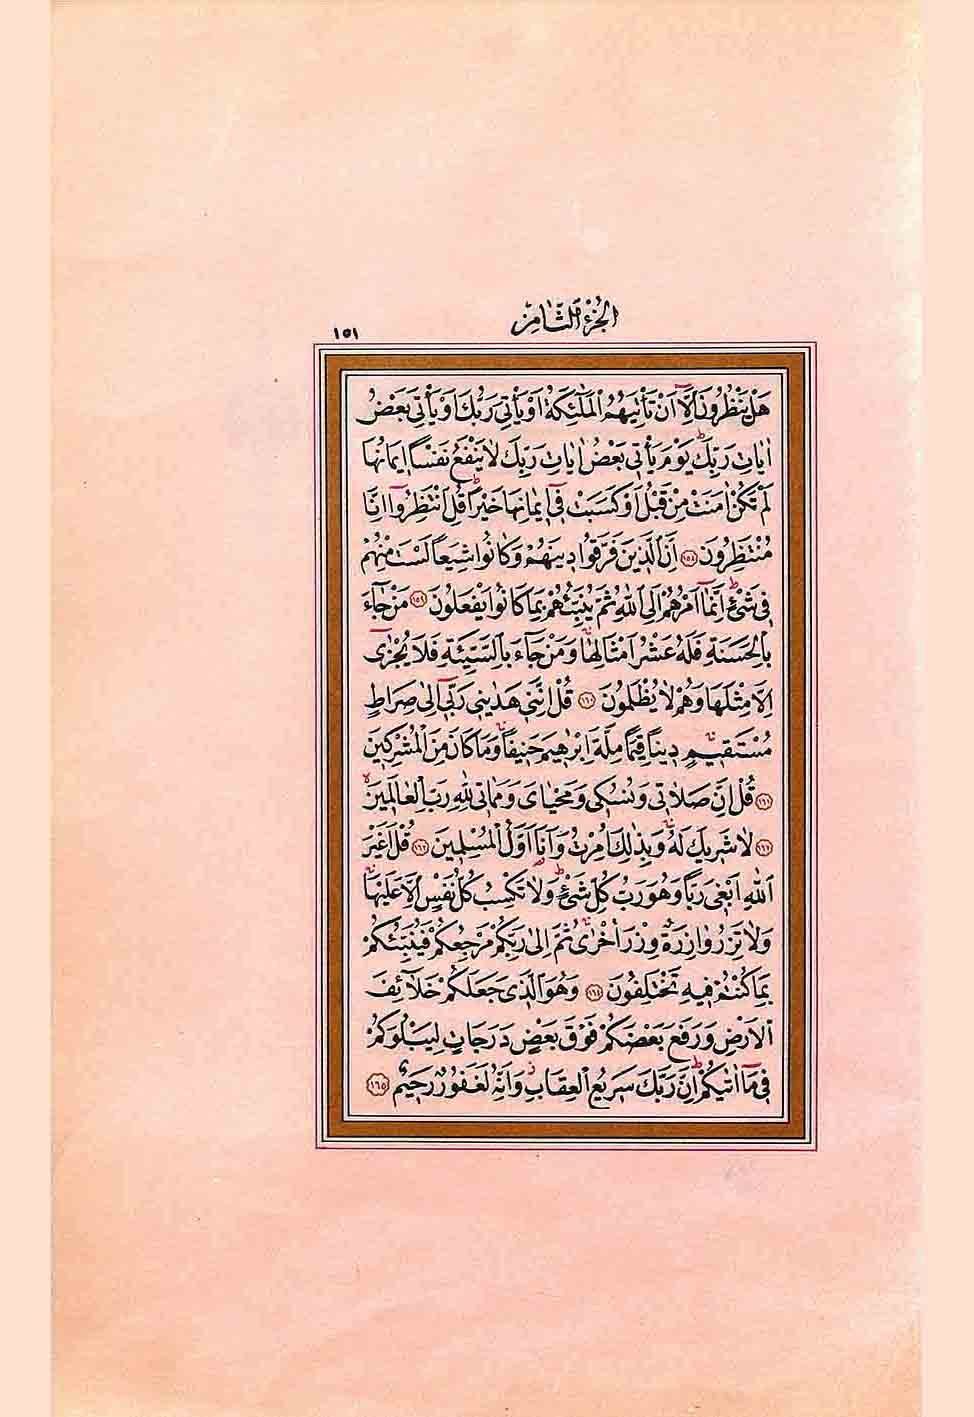 الجزء الثامن
١٥١
هَلْ يَنْظُرُونَ اِلَّٓا اَنْ تَأْتِيَهُمُ الْمَلٰٓئِكَةُ اَوْ يَأْتِيَ رَبُّكَ اَوْ يَأْتِيَ بَعْضُ
اٰيَاتِ رَبِّكَۜ يَوْمَ يَأْتٖي بَعْضُ اٰيَاتِ رَبِّكَ لَا يَنْفَعُ نَفْساً اٖيمَانُهَا
لَمْ تَكُنْ اٰمَنَتْ مِنْ قَبْلُ اَوْ كَسَبَتْ فٖٓي اٖيمَانِهَا خَيْراًۜ قُلِ انْتَظِرُٓوا اِنَّا
مُنْتَظِرُونَ ﴿١٥٨﴾ اِنَّ الَّذٖينَ فَرَّقُوا دٖينَهُمْ وَكَانُوا شِيَعاً لَسْتَ مِنْهُمْ
فٖي شَيْءٍۜ اِنَّمَٓا اَمْرُهُمْ اِلَى اللّٰهِ ثُمَّ يُنَبِّئُهُمْ بِمَا كَانُوا يَفْعَلُونَ ﴿١٥٩﴾ مَنْ جَٓاءَ
بِالْحَسَنَةِ فَلَهُ عَشْرُ اَمْثَالِهَاۚ وَمَنْ جَٓاءَ بِالسَّيِّئَةِ فَلَا يُجْزٰٓى
اِلَّا مِثْلَهَا وَهُمْ لَا يُظْلَمُونَ ﴿١٦٠﴾ قُلْ اِنَّنٖي هَدٰينٖي رَبّٖٓي اِلٰى صِرَاطٍ
مُسْتَقٖيمٍۚ دٖيناً قِيَماً مِلَّةَ اِبْرٰهٖيمَ حَنٖيفاًۚ وَمَا كَانَ مِنَ الْمُشْرِكٖينَ
﴿١٦١﴾ قُلْ اِنَّ صَلَاتٖي وَنُسُكٖي وَمَحْيَايَ وَمَمَاتٖي لِلّٰهِ رَبِّ الْعَالَمٖينَۙ
﴿١٦٢﴾ لَا شَرٖيكَ لَهُۚ وَبِذٰلِكَ اُمِرْتُ وَاَنَا۬ اَوَّلُ الْمُسْلِمٖينَ ﴿١٦٣﴾ قُلْ اَغَيْرَ
اللّٰهِ اَبْغٖي رَباًّ وَهُوَ رَبُّ كُلِّ شَيْءٍۜ وَلَا تَكْسِبُ كُلُّ نَفْسٍ اِلَّا عَلَيْهَاۚ
وَلَا تَزِرُ وَازِرَةٌ وِزْرَ اُخْرٰىۚ ثُمَّ اِلٰى رَبِّكُمْ مَرْجِعُكُمْ فَيُنَبِّئُكُمْ
بِمَا كُنْتُمْ فٖيهِ تَخْتَلِفُونَ ﴿١٦٤﴾ وَهُوَ الَّذٖي جَعَلَكُمْ خَلَٓائِفَ
الْاَرْضِ وَرَفَعَ بَعْضَكُمْ فَوْقَ بَعْضٍ دَرَجَاتٍ لِيَبْلُوَكُمْ
فٖي مَٓا اٰتٰيكُمْۜ اِنَّ رَبَّكَ سَرٖيعُ الْعِقَابِۘ وَاِنَّهُ لَغَفُورٌ رَحٖيمٌ ﴿١٦٥﴾